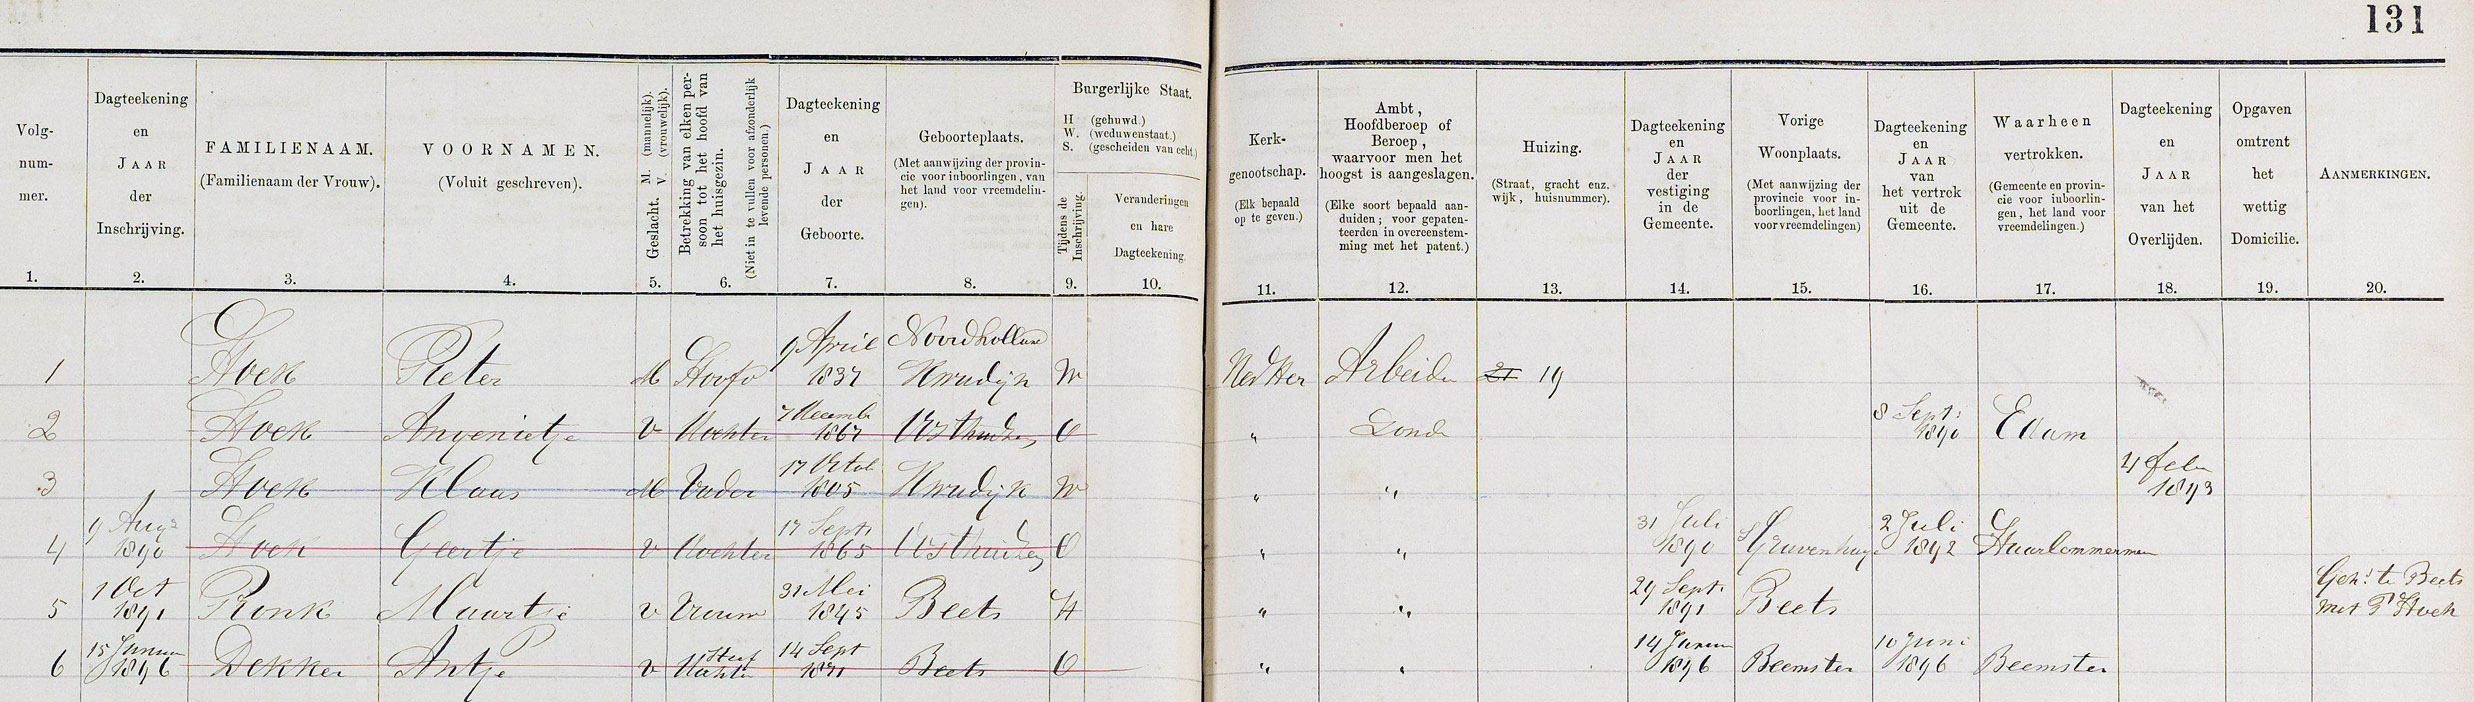 131
Volg-
num-
mer.
1.
Dagteekening
en
JAAR
der
Inschrijving.
2.
FAMILIENAAM.
(Familienaam der Vrouw).
3.
VOORNAMEN.
(Voluit geschreven).
4.
Geslacht. M. (mannelijk).
V. (vrouwelijk).
5.
Betrekking van elken per-
soon tot het hoofd van
het huisgezin.
(Niet in te vullen voor afzonderlijk
levende personen.)
6.
Dagteekening
en
JAAR
der
Geboorte.
7.
Geboorteplaats.
(Met aanwijzing der provin-
cie voor inboorlingen, van
het land voor vreemdelin-
gen).
8.
Burgerlijke Staat.
H (gehuwd.)
W. (weduwenstaat.)
S. (gescheiden van echt.)
Tijdens de
Inschrijving.
9.
Veranderingen
en hare
Dagteekening.
10.
Kerk-
genootschap.
(Elk bepaald
op te geven.)
11.
Ambt,
Hoofdberoep of
Beroep,
waarvoor men het
hoogst is aangeslagen.
(Elke soort bepaald aan-
duiden; voor gepaten-
teerden in overeenstem-
ming met het patent.)
12.
Huizing.
(Straat, gracht enz.
wijk, huisnummer).
13.
Dagteekening
en
JAAR
der
vestiging
in de
Gemeente.
14.
Vorige
Woonplaats.
(Met aanwijzing der
provincie voor in-
boorlingen, het land
voor vreemdelingen)
15.
Dagteekening
en
JAAR
van
het vertrek
uit de
Gemeente.
16.
Waarheen
vertrokken.
(Gemeente en provin-
cie voor inboorlin-
gen, het land voor
vreemdelingen.)
17.
Dagteekening
en
JAAR
van het
Overlijden.
18.
Opgaven
omtrent
het
wettig
Domicilie.
19.
AANMERKINGEN.
20.
9 April Noordholland
1 Hoek Pieter M Hoofd 1837 Kwadijk W Ned Her Arbeider 21 19
7 Decemb 8 Sept:
2 Hoek Angenietje V Dochter 1867 Oosthuizen O " Zonder 1890 Edam
17 Octob 4 Febr
3 Hoek Klaas M Vader 1805 Kwadijk W " " 1893
9 Augs 17 Sept 31 Juli 2 Juli
4 1890 Hoek Geertje V Dochter 1865 Oosthuizen O " " 1890 's Gravenhage 1892 Haarlemmermeer
1 Oct 31 Mei 29 Sept. Geh: te Beets
5 1891 Pronk Maartje V Vrouw 1845 Beets H " " 1891 Beets met P Hoek
15 Januari Stief 14 Sept 14 Januari 10 Juni
6 1896 Dekker Antje V Dochter 1871 Beets O " " 1896 Beemster 1896 Beemster